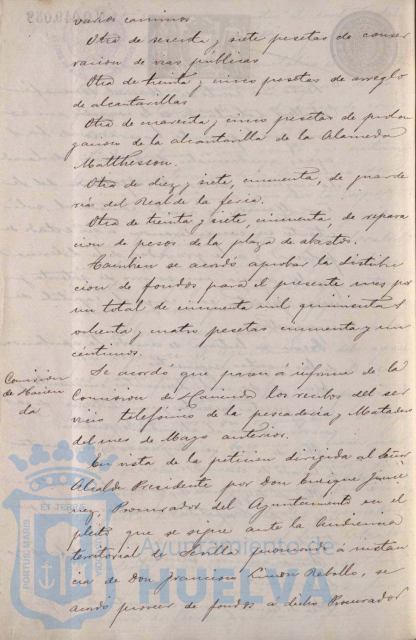 varios caminos.
Otra de sesenta y siete pesetas de conser
vacion de vias públicas
Otra de treinta y cinco pesetas de arreglo
de alcantarillas
Otra de cuarenta y cinco pesetas de prolon
gacion de la alcantarilla de la Alameda
Matthesson.
Otra de diez y siete, cincuenta, de guarde
ria del Real de la feria.
Otra de treinta y siete, cincuenta, de repara
cion de pesos de la plaza de abastos.
Tambien se acordó aprobar la distribu
cion de fondos para el presente mes por
un total de cincuenta mil quinientas
ochenta y cuatro pesetas cincuenta y un
centimos.
Comision
de Hacien
da
Se acordó que pasen á informe de la
Comision de Hacienda los recibos del ser
vicio telefónico de la pescaderia y Matadero
del mes de Mayo anterior.
En vista de la peticion dirigida al Señor
Alcalde Presidente por Don Enrique Jimé
nez, Procurador del Ayuntamiento en el
pleito que se sigue ante la Audiencia
territorial de Sevilla promovido á instan
cia de Don Francisco Limon Rebollo, se
acordó proveer de fondos á dicho Procurador
PORTUS MARIS
ET TERRAE
Ayuntamiento de
HUELVA